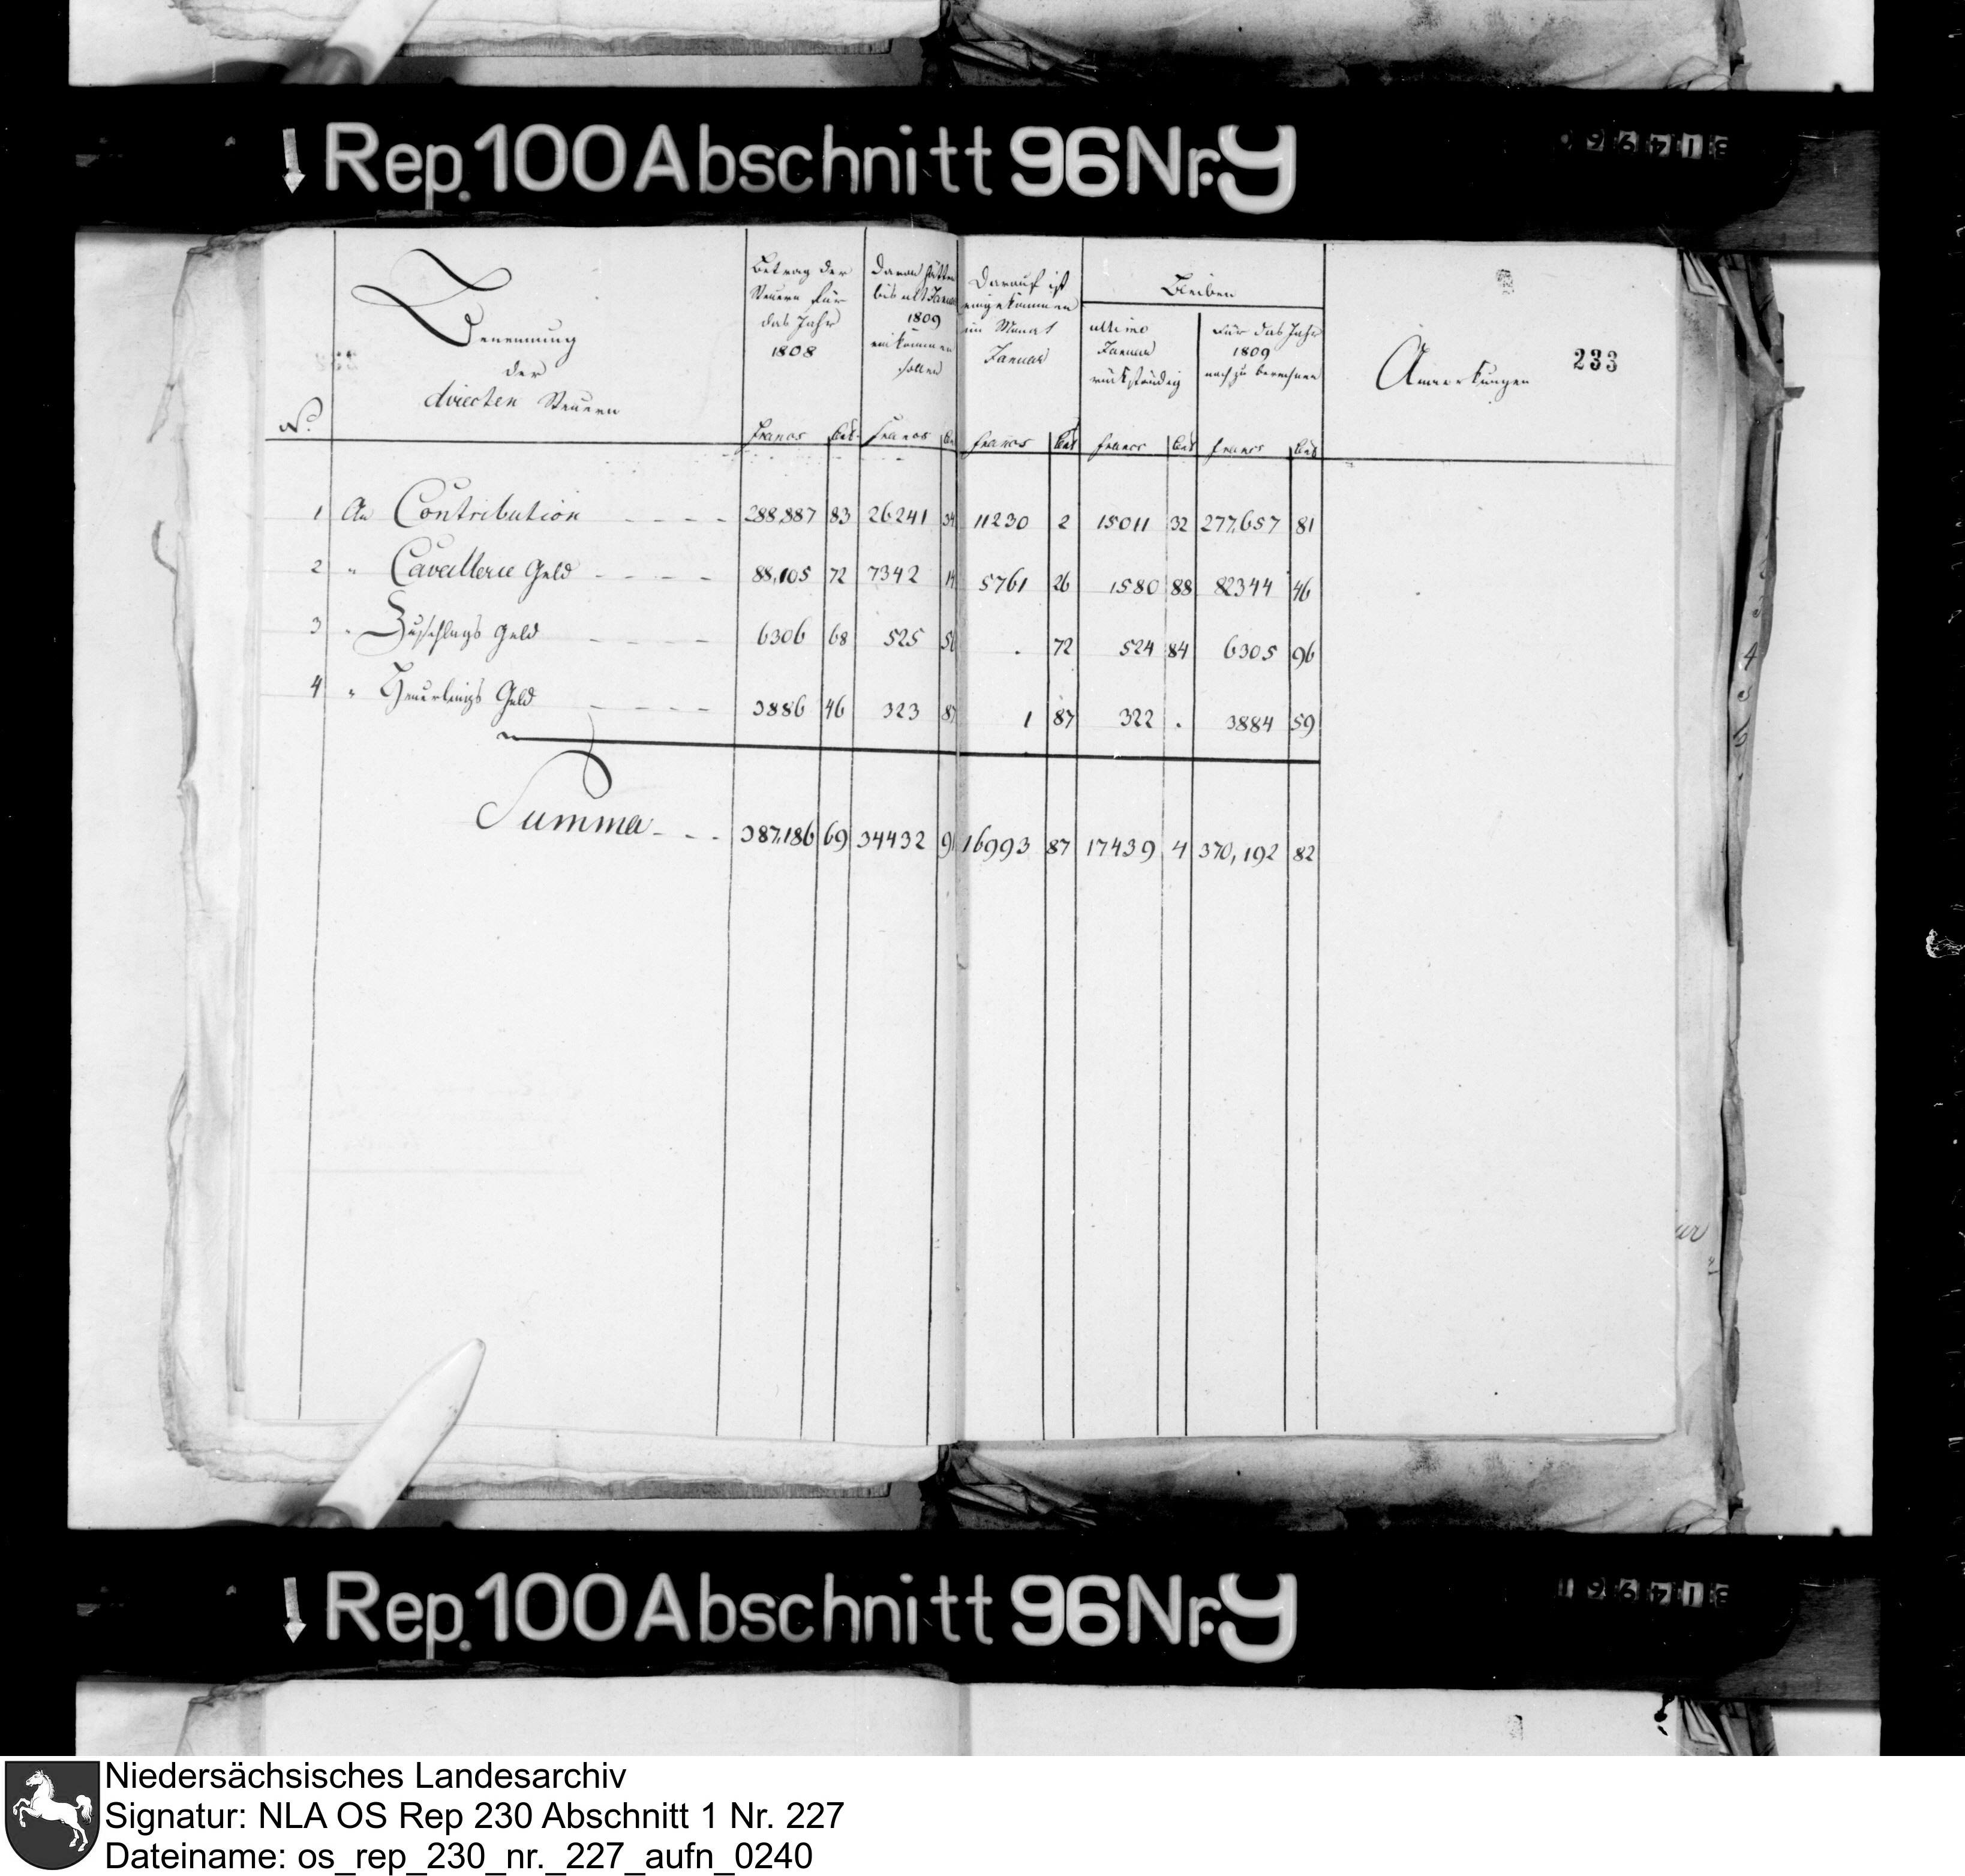 Rep. 100 Abschnitt 96 Nr. 9
233
No.
Benennung
der
directen Steuern
Betrag der
Steuern für
das Jahr
1808
Francs Cts.
Davon hätten
bis ult Januar
1809
einkommen
sollen
Francs
Darauf ist
eingekommen
im Monat
Januar
Francs Cts
Bleiben
ultimo
Januar
rückständig
Francs Cts
Für das Jahr
1809
noch zu berechnen
Francs Cts
Anmerkungen
1 An Contribution - - - - 288,887 83 26241 34 11230 2 15011 32 277,657 81
2 " Cavallerie Geld - - - - 88,105 72 7342 14 5761 26 1580 88 82344 46
3 " Zuschlags Geld - - - 6306 68 525 56 . 72 524 84 6305 96
4 " Heuerlings Geld - - - - 3886 46 323 87 1 87 322 . 3884 59
Summa - - - 387,186 69 34432 91 16993 87 17439 4 370,192 82
Rep. 100 Abschnitt 96 Nr. 9
Niedersächsisches Landesarchiv
Signatur: NLA OS Rep 230 Abschnitt 1 Nr. 227
Dateiname: os_rep_230_nr._227_aufn_0240